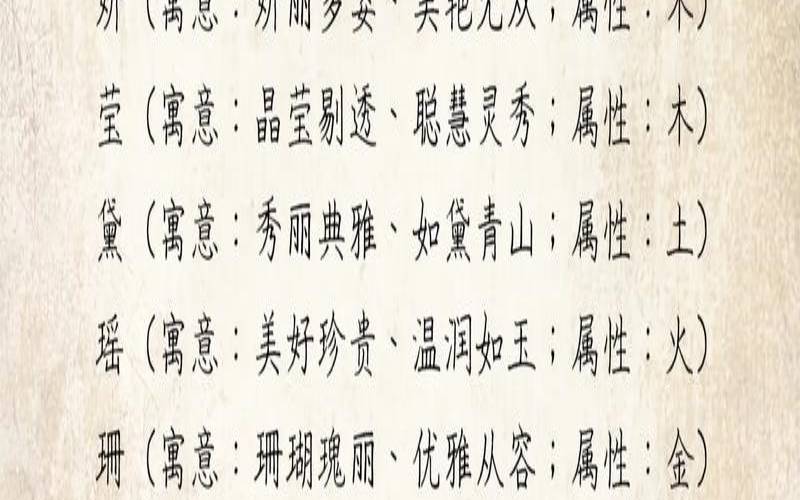 妍（寓意：妍丽多姿、美艳无双；属性：木）
莹（寓意：晶莹剔透、聪慧灵秀；属性：木）
黛（寓意：秀丽典雅、如黛青山；属性：土）
瑶（寓意：美好珍贵、温润如玉；属性：火）
珊（寓意：珊瑚瑰丽、优雅从容；属性：金）